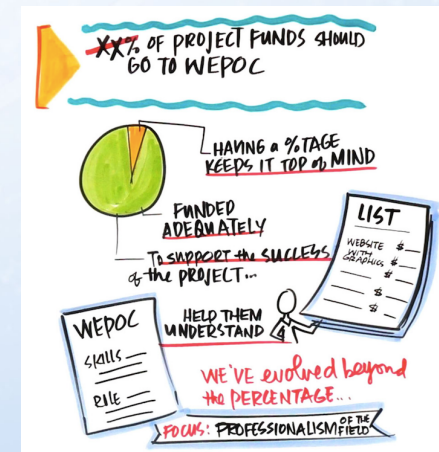 XX% OF PROJECT FUNDS SHOULD
GO TO WEPOC
HAVING a %TAGE
KEEPS IT TOP of MIND
FUNDED
ADEQUATELY
TO SUPPORT the SUCCESS
of the PROJECT...
LIST
WEBSITE $
WITH
GRAPHICS $
$
$
$
HELP THEM
UNDERSTAND
WEPOC
SKILLS
ROLE
WE'VE evolved beyond
the PERCENTAGE...
FOCUS: PROFESSIONALISM OF THE
FIELD